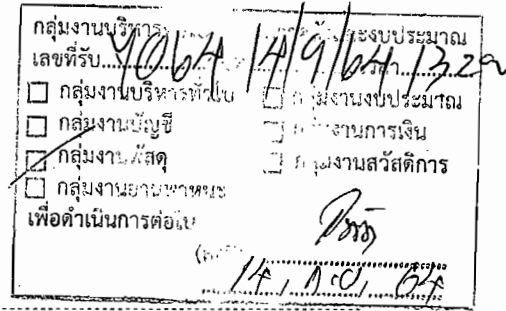 กลุ่มงานบริหาร ะงบประมาณ
เลขที่รับ 9064 14/9/64 132
☐ กลุ่มงานบริหารทั่วไป ☐ กลุ่มงานงบประมาณ
☐ กลุ่มงานบัญชี ☐ กลุ่มงานการเงิน
☐ กลุ่มงานพัสดุ ☐ กลุ่มงานสวัสดิการ
☐ กลุ่มงานยานพาหนะ
เพื่อดำเนินการต่อไป
14 ก.ย. 64